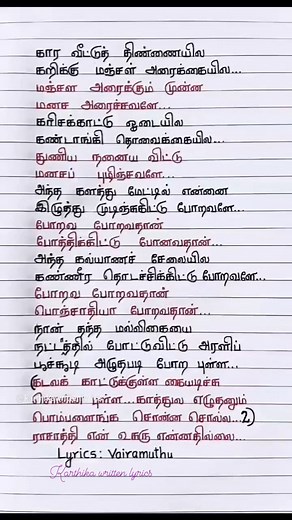 கார வீட்டுத் திண்ணையில
கறிக்கு மஞ்சள் அரைக்கையில...
மஞ்சள அரைக்கும் முன்ன
மனச அரைச்சவளே...
கரிசக்காட்டு ஓடையில
கண்டாங்கி தொவைக்கையில...
துணிய நனைய விட்டு
மனசப் புழிஞ்சவளே...
அந்த களத்து மேட்டில் என்னை
கிழுத்து முடிஞ்சுகிட்டு போறவளே...
போறவ போறவதான்
போத்திக்கிட்டு போனவதான்...
அந்த கல்யாணச் சேலையில
கண்ணீர தொடச்சிக்கிட்டு போறவளே...
போறவ போறவதான்
பொஞ்சாதியா போறவதான்...
நான் தந்த மல்லிகையை
நட்டாத்தில் போட்டுவிட்டு அரளிப்
பூச்சூடி அழுதபடி போற புள்ள...
(கடலக் காட்டுக்குள்ள கையடிச்சு
சொன்ன புள்ள...காத்துல எழுதனும்
பொம்பளைங்க சொன்ன சொல்ல...2)
ராசாத்தி என் உசுரு என்னதில்லை...
Lyrics: Vairamuthu
Karthika written lyrics